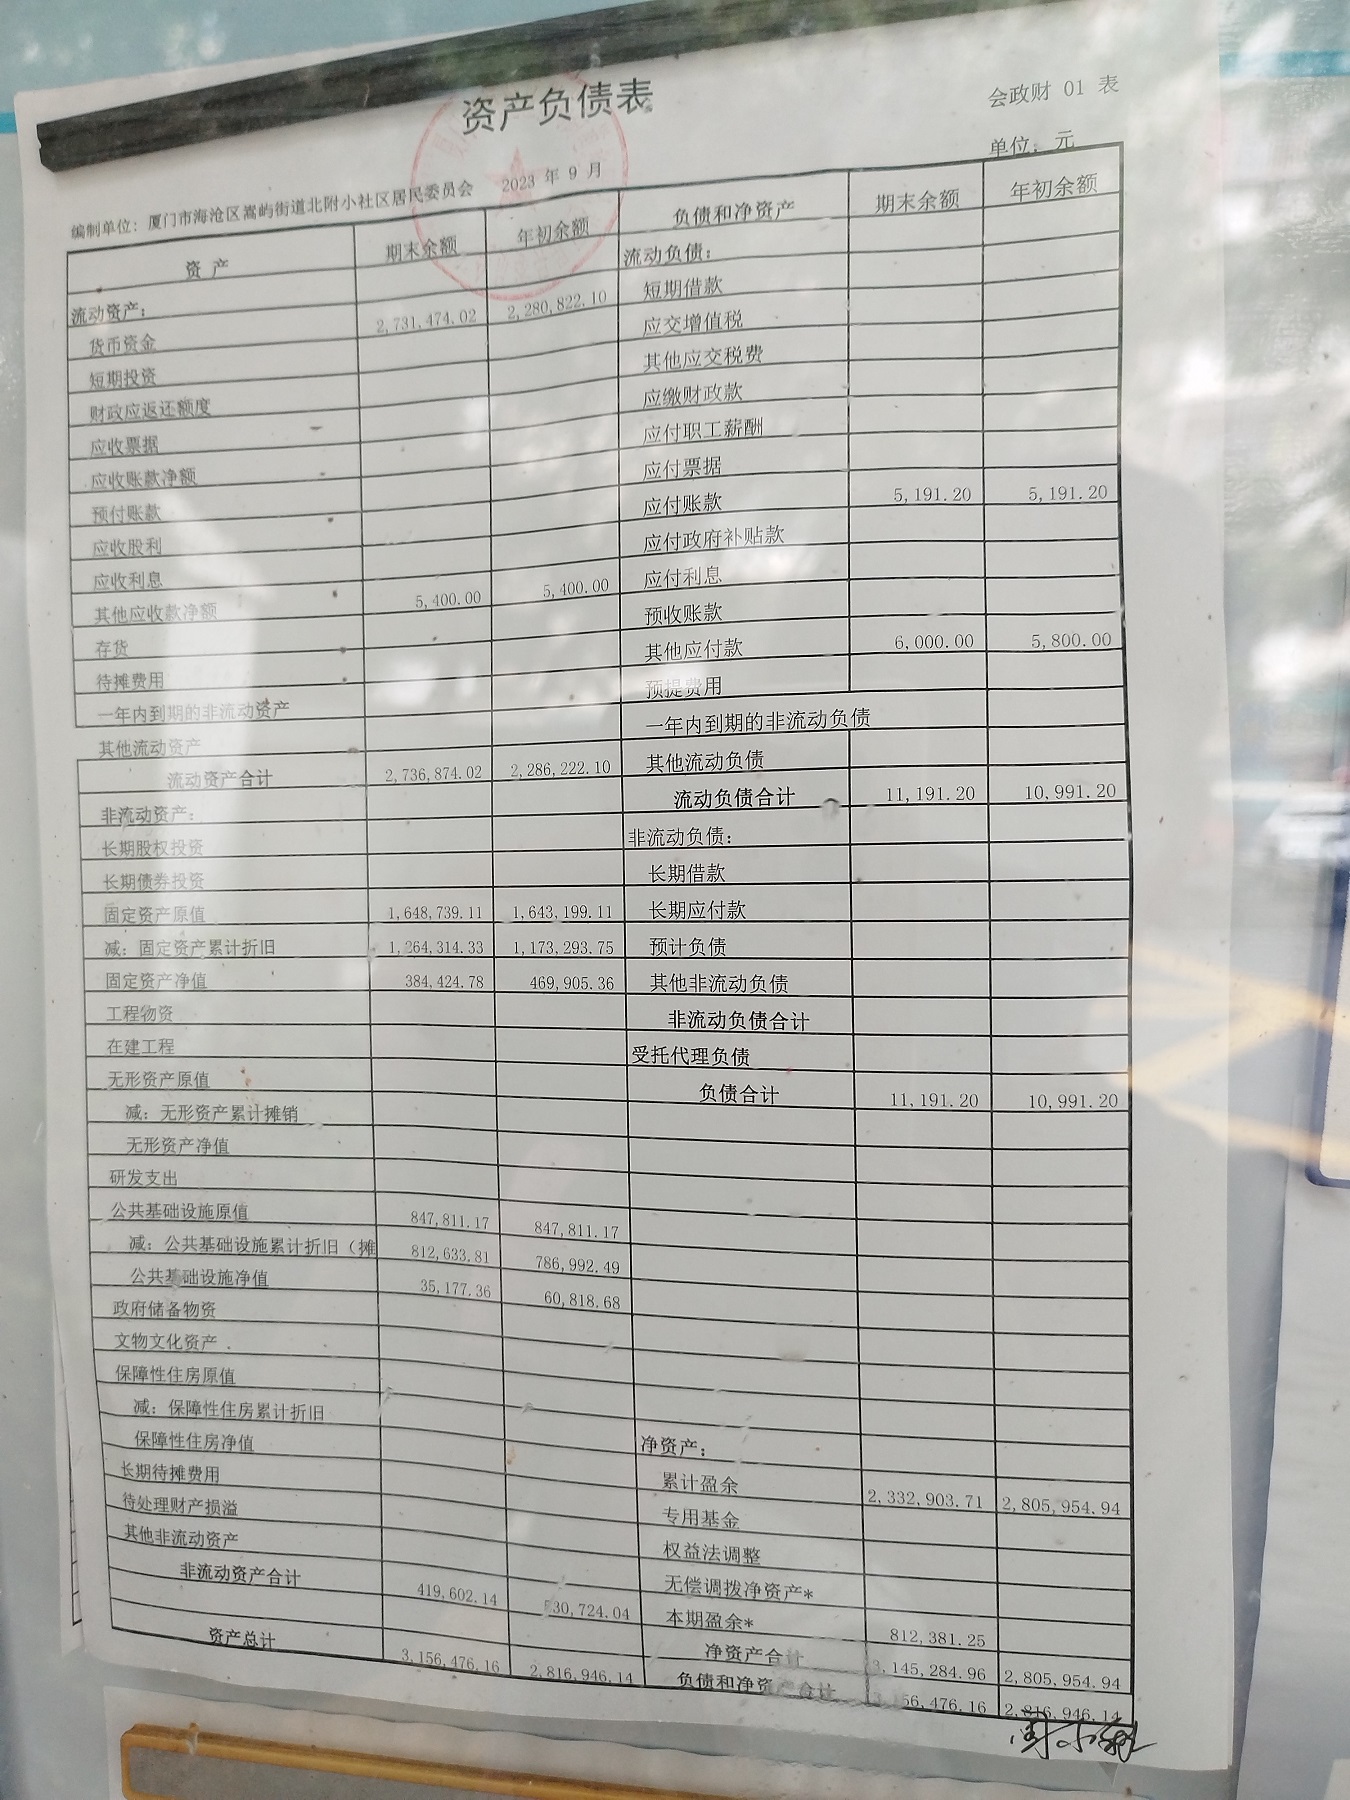 资产负债表
会政财 01 表
单位：元
编制单位：厦门市海沧区嵩屿街道北附小社区居民委员会 2023 年 9 月
资 产 期末余额 年初余额 负债和净资产 期末余额 年初余额
流动资产： 流动负债：
货币资金 2,731,474.02 2,280,822.10 短期借款
短期投资 应交增值税
财政应返还额度 其他应交税费
应收票据 应缴财政款
应收账款净额 应付职工薪酬
预付账款 应付票据
应收股利 应付账款 5,191.20 5,191.20
应收利息 应付政府补贴款
其他应收款净额 5,400.00 5,400.00 应付利息
存货 预收账款
待摊费用 其他应付款 6,000.00 5,800.00
一年内到期的非流动资产 预提费用
其他流动资产 一年内到期的非流动负债
流动资产合计 2,736,874.02 2,286,222.10 其他流动负债
非流动资产： 流动负债合计 11,191.20 10,991.20
长期股权投资 非流动负债：
长期债券投资 长期借款
固定资产原值 1,648,739.11 1,643,199.11 长期应付款
减：固定资产累计折旧 1,264,314.33 1,173,293.75 预计负债
固定资产净值 384,424.78 469,905.36 其他非流动负债
工程物资 非流动负债合计
在建工程 受托代理负债
无形资产原值 负债合计 11,191.20 10,991.20
减：无形资产累计摊销
无形资产净值
研发支出
公共基础设施原值 847,811.17 847,811.17
减：公共基础设施累计折旧（摊 812,633.81 786,992.49
公共基础设施净值 35,177.36 60,818.68
政府储备物资
文物文化资产
保障性住房原值
减：保障性住房累计折旧
保障性住房净值 净资产：
长期待摊费用 累计盈余 2,332,903.71 2,805,954.94
待处理财产损溢 专用基金
其他非流动资产 权益法调整
非流动资产合计 419,602.14 530,724.04 无偿调拨净资产*
本期盈余* 812,381.25
资产总计 3,156,476.16 2,816,946.14 净资产合计 3,145,284.96 2,805,954.94
负债和净资产合计 3,156,476.16 2,816,946.14